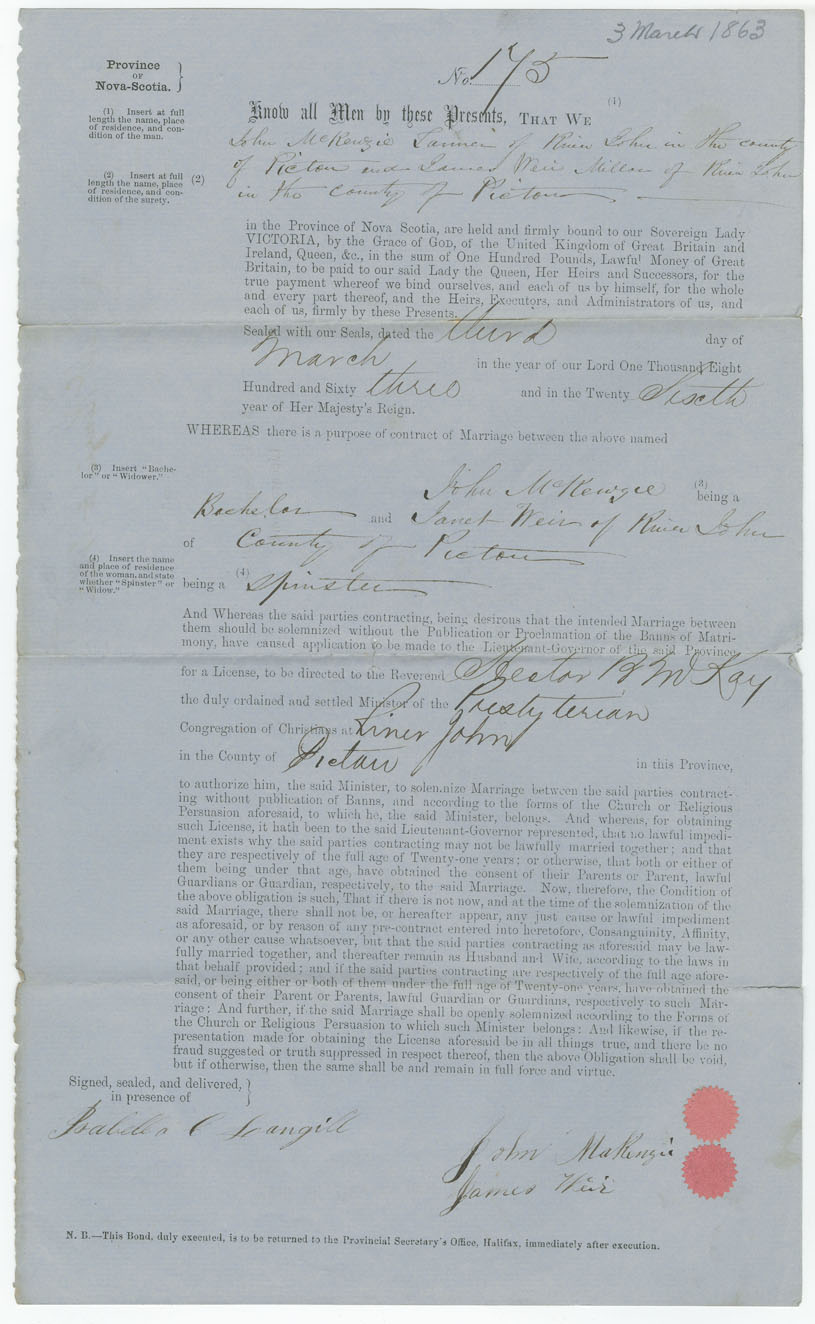 3 March 1863
Province
OF
Nova-Scotia.
No. 175
(1) Insert at full
length the name, place
of residence, and con-
dition of the man.
Know all Men by these Presents, THAT WE (1)
John McKenzie Tanner of River John in the county
(2) Insert at full
length the name, place
of residence, and con-
dition of the surety.
(2) of Pictou and James Weir Miller of River John
in the County of Pictou
in the Province of Nova Scotia, are held and firmly bound to our Sovereign Lady
VICTORIA, by the Grace of GOD, of the United Kingdom of Great Britain and
Ireland, Queen, &c., in the sum of One Hundred Pounds, Lawful Money of Great
Britain, to be paid to our said Lady the Queen, Her Heirs and Successors, for the
true payment whereof we bind ourselves, and each of us by himself, for the whole
and every part thereof, and the Heirs, Executors, and Administrators of us, and
each of us, firmly by these Presents.
Sealed with our Seals, dated the third day of
March in the year of our Lord One Thousand Eight
Hundred and Sixty three and in the Twenty Sixth
year of Her Majesty's Reign.
WHEREAS there is a purpose of contract of Marriage between the above named
(3) Insert "Bache-
lor" or "Widower."
John McKenzie (3) being a
Bachelor and Janet Weir of River John
of County of Pictou
(4) Insert the name
and place of residence
of the woman, and state
whether "Spinster" or
"Widow."
being a (4) Spinster
And Whereas the said parties contracting, being desirous that the intended Marriage between
them should be solemnized without the Publication or Proclamation of the Banns of Matri-
mony, have caused application to be made to the Lieutenant-Governor of the said Province
for a License, to be directed to the Reverend Hector B McKay
the duly ordained and settled Minister of the Presbyterian
Congregation of Christians at River John
in the County of Pictou in this Province,
to authorize him, the said Minister, to solemnize Marriage between the said parties contract-
ing without publication of Banns, and according to the forms of the Church or Religious
Persuasion aforesaid, to which he, the said Minister, belongs. And whereas, for obtaining
such License, it hath been to the said Lieutenant-Governor represented, that no lawful impedi-
ment exists why the said parties contracting may not be lawfully married together; and that
they are respectively of the full age of Twenty-one years; or otherwise, that both or either of
them being under that age, have obtained the consent of their Parents or Parent, lawful
Guardians or Guardian, respectively, to the said Marriage. Now, therefore, the Condition of
the above obligation is such, That if there is not now, and at the time of the solemnization of the
said Marriage, there shall not be, or hereafter appear, any just cause or lawful impediment
as aforesaid, or by reason of any pre-contract entered into heretofore, Consanguinity, Affinity,
or any other cause whatsoever, but that the said parties contracting as aforesaid may be law-
fully married together, and thereafter remain as Husband and Wife, according to the laws in
that behalf provided; and if the said parties contracting are respectively of the full age afore-
said, or being either or both of them under the full age of Twenty-one years, have obtained the
consent of their Parent or Parents, lawful Guardian or Guardians, respectively to such Mar-
riage: And further, if the said Marriage shall be openly solemnized according to the Forms of
the Church or Religious Persuasion to which such Minister belongs: And likewise, if the re-
presentation made for obtaining the License aforesaid be in all things true, and there be no
fraud suggested or truth suppressed in respect thereof, then the above Obligation shall be void,
but if otherwise, then the same shall be and remain in full force and virtue.
Signed, sealed, and delivered,
in presence of
Isabella C Langill
John McKenzie
James Weir
N. B.—This Bond, duly executed, is to be returned to the Provincial Secretary's Office, Halifax, immediately after execution.